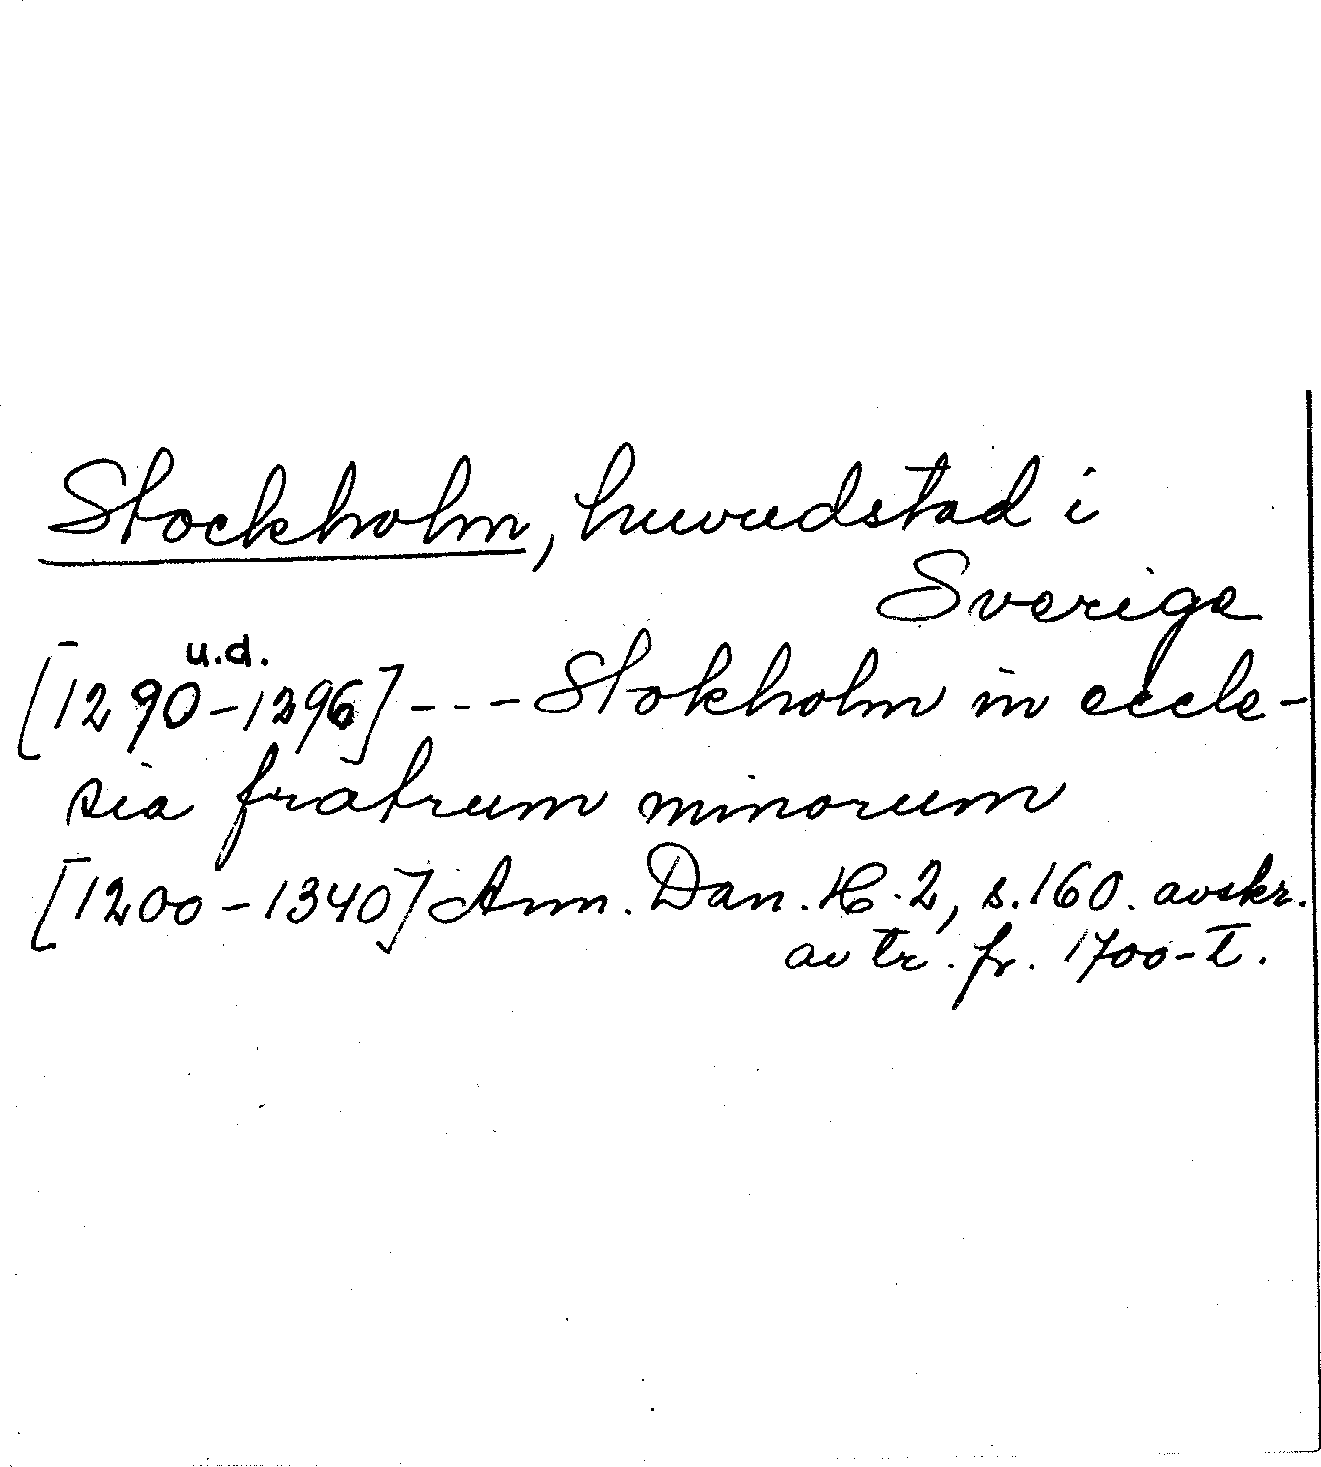 Stockholm, huvudstad i
Sverige
u.d.
[1290-1296] --- Stokholm in eccle-
sia fratrum minorum
[1200-1340] Ann. Dan. H. 2, s. 160. avskr.
av tr. fr. 1700-t.